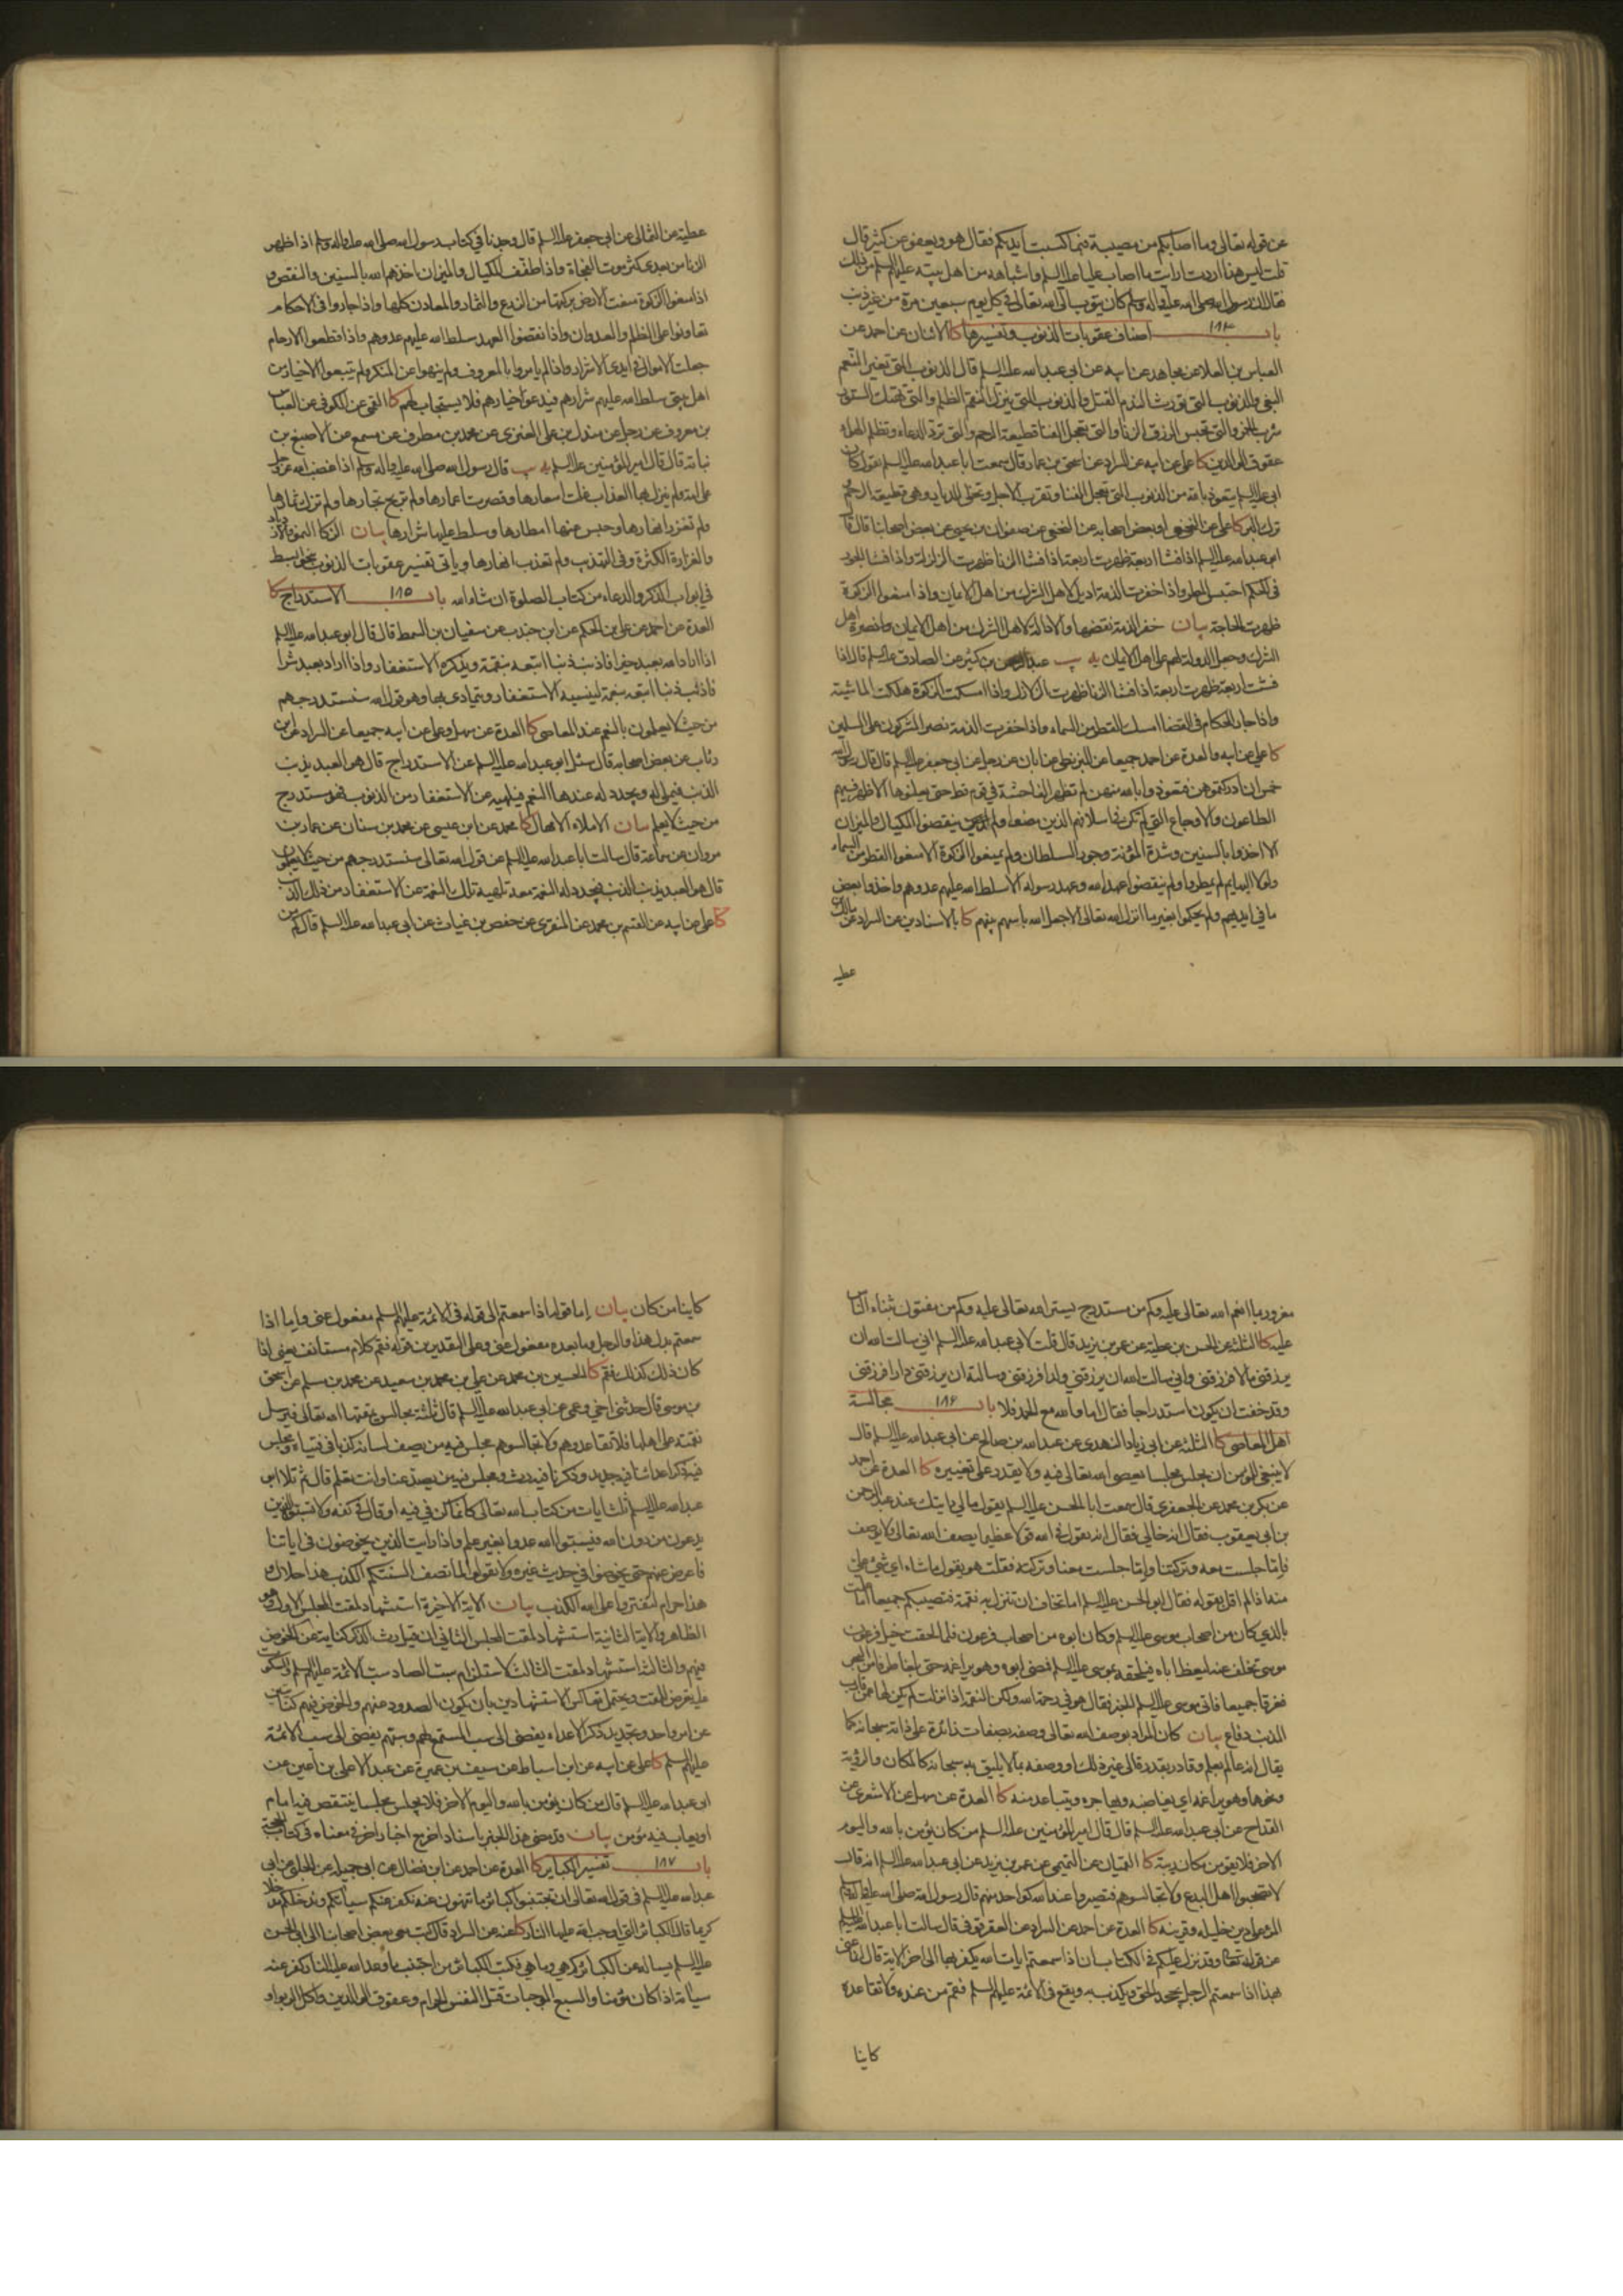 عن قوله تعالى وما اصابكم من مصيبة فبما كسبت ايديكم فقال هو ويعفو عن كثير قال
قلت ليس هذا اردت ارايت ما اصاب عليا عليه السلم واشباهه من اهل بيته عليهم السلم من ذلك
فقال ان رسول الله صلى الله عليه واله وسلم كان يتوب الى الله تعالى في كل يوم سبعين مرة من غير ذنب
باب ١٨٤ اصناف عقوبات الذنوب وتفسيرها كا الاثنان عن احمد عن
العباس بن العلا عن مجاهد عن ابيه عن ابي عبد الله عليه السلم قال الذنوب التي تغير النعم
البغي والذنوب التي تورث الندم القتل والذنوب التي تنزل النقم الظلم والتي تهتك الستور
شرب الخمر والتي تحبس الرزق الزنا والتي تعجل الفنا قطيعة الرحم والتي ترد الدعاء وتظلم الهواء
عقوق الوالدين كا علي عن ابيه عن السراد عن اسحق بن عمار قال سمعت ابا عبد الله عليه السلم يقول كان
ابي عليه السلم يتعوذ بالله من الذنوب التي تعجل الفنا وتقرب الاجل وتخلي الديار وهي قطيعة الرحم
ترك البر كا علي عن النخعي او بعض اصحابه عن النخعي عن صفوان بن يحيى عن بعض اصحابنا قال قال
ابو عبد الله عليه السلم اذا فشا اربعة ظهرت اربعة اذا فشا الزنا ظهرت الزلزلة واذا فشا الجور
في الحكم احتبس المطر واذا خفرت الذمة اديل لاهل الشرك من اهل الايمان واذا منعوا الزكوة
ظهرت الحاجة بيان خفر الذمة نقضها والادالة لاهل الشرك من اهل الايمان نصرة اهل
الشرك وجعل الدولة لهم على اهل الايمان يه يب عبد الرحمن بن كثير عن الصادق عليه السلم قال اذا
فشت اربعة ظهرت اربعة اذا فشا الزنا ظهرت الزلازل واذا امسكت الزكوة هلكت الماشية
واذا جار الحكام في القضا امسك القطر من السماء واذا خفرت الذمة نصر المشركون على المسلمين
كا علي عن ابيه والعدة عن احمد جميعا عن البزنطي عن ابان عن رجل عن ابي جعفر عليه السلم قال قال رسول الله
خمس ان ادركتموهن فتعوذوا بالله منهن لم تظهر الفاحشة في قوم قط حتى يعلنوها الا ظهر فيهم
الطاعون والاوجاع التي لم تكن في اسلافهم الذين مضوا ولم ينقصوا المكيال والميزان
الا اخذوا بالسنين وشدة المؤنة وجور السلطان ولم يمنعوا الزكوة الا منعوا القطر من السماء
ولولا البهايم لم يمطروا ولم ينقضوا عهد الله وعهد رسوله الا سلط الله عليهم عدوهم واخذوا بعض
ما في ايديهم ولم يحكموا بغير ما انزل الله تعالى الا جعل الله باسهم بينهم كا بالاسنادين عن السراد عن مالك بن
عطية
عطية عن الثمالي عن ابي جعفر عليه السلم قال وجدنا في كتاب رسول الله صلى الله عليه واله وسلم اذا ظهر
الزنا من بعدي كثر موت الفجاة واذا طفف المكيال والميزان اخذهم الله بالسنين والنقص و
اذا منعوا الزكوة منعت الارض بركتها من الزرع والثمار والمعادن كلها واذا جاروا في الاحكام
تعاونوا على الظلم والعدوان واذا نقضوا العهد سلط الله عليهم عدوهم واذا قطعوا الارحام
جعلت الاموال في ايدي الاشرار واذا لم يامروا بالمعروف ولم ينهوا عن المنكر ولم يتبعوا الاخيار من
اهل بيتي سلط الله عليهم شرارهم فيدعو اخيارهم فلا يستجاب لهم كا القمي عن الكوفي عن العباس
بن معروف عن رجل عن مندل بن علي العنزي عن محمد بن مطرف عن مسمع عن الاصبغ بن
نباتة قال قال امير المؤمنين عليه السلم يه يب قال رسول الله صلى الله عليه واله وسلم اذا غضب الله عز وجل
على امة ولم ينزل بها العذاب غلت اسعارها وقصرت اعمارها ولم تربح تجارها ولم تزك ثمارها
ولم تغزر انهارها وحبس عنها امطارها وسلط عليها شرارها بيان الزكا النمو
والغزارة الكثرة وفي التهذيب ولم تعذب انهارها وياتي تفسير عقوبات الذنوب بنحو ابسط
في ابواب الذكر والدعاء من كتاب الصلوة ان شاء الله باب ١٨٥ الاستدراج كا
العدة عن احمد عن علي بن الحكم عن ابن جندب عن سفيان بن السمط قال قال ابو عبد الله عليه السلم
اذا اراد الله بعبد خيرا فاذنب ذنبا اتبعه بنقمة ويذكره الاستغفار واذا اراد بعبد شرا
فاذنب ذنبا اتبعه بنعمة لينسيه الاستغفار ويتمادى بها وهو قول الله سنستدرجهم
من حيث لا يعلمون بالنعم عند المعاصي كا العدة عن سهل وعلي عن ابيه جميعا عن السراد عن ابن
رئاب عن بعض اصحابه قال سئل ابو عبد الله عليه السلم عن الاستدراج قال هو العبد يذنب
الذنب فيملى له ويجدد له عندها النعم فيلهيه عن الاستغفار من الذنوب فهو مستدرج
من حيث لا يعلم بيان الاملاء الامهال كا محمد عن ابن عيسى عن محمد بن سنان عن عمار بن
مروان عن سماعة قال سالت ابا عبد الله عليه السلم عن قول الله تعالى سنستدرجهم من حيث لا يعلمون
قال هو العبد يذنب الذنب فيجدد له النعمة معه تلهيه تلك النعمة عن الاستغفار من ذلك الذنب
كا علي عن ابيه عن القسم بن محمد عن المنقري عن حفص بن غياث عن ابي عبد الله عليه السلم قال كم من
مغرور بما انعم الله تعالى عليه وكم من مستدرج يستر الله تعالى عليه وكم من مفتون بثناء الناس
عليه كا الثلثة عن الحسن بن عطية عن عمر بن يزيد قال قلت لابي عبد الله عليه السلم اني سالت الله ان
يرزقني مالا فرزقني واني سالت الله ان يرزقني ولدا فرزقني وسالته ان يرزقني دارا فرزقني
وقد خفت ان يكون استدراجا فقال اما والله مع الحمد فلا باب ١٨۶ مجالسة
اهل المعاصي كا الثلثة عن ابي زياد النهدي عن عبد الله بن صالح عن ابي عبد الله عليه السلم قال
لا ينبغي للمؤمن ان يجلس مجلسا يعصى الله تعالى فيه ولا يقدر على تغييره كا العدة عن احمد
عن بكر بن محمد عن الجعفري قال سمعت ابا الحسن عليه السلم يقول ما لي رايتك عند عبد الرحمن
بن ابي يعقوب فقال انه خالي فقال انه يقول في الله قولا عظيما يصف الله تعالى ولا يوصف
فاما جلست معه وتركتنا واما جلست معنا وتركته فقلت هو يقول ما شاء اي شيء علي
منه اذا لم اقل بقوله فقال ابو الحسن عليه السلم اما تخاف ان تنزل به نقمة فتصيبكم جميعا اما علمت
بالذي كان من اصحاب موسى عليه السلم وكان ابوه من اصحاب فرعون فلما لحقت خيل فرعون
موسى تخلف عنه ليعظ اباه فيلحقه بموسى عليه السلم فمضى ابوه وهو يراغمه حتى بلغا طرفا من البحر
فغرقا جميعا فاتى موسى عليه السلم الخبر فقال هو في رحمة الله ولكن النقمة اذا نزلت لم يكن لها عمن قارب
المذنب دفاع بيان كان المراد بوصف الله تعالى وصفه بصفات زائدة على ذاته سبحانه كما
يقال انه عالم بعلم وقادر بقدرة الى غير ذلك او وصفه بما لا يليق به سبحانه كالمكان والرؤية
ونحوها وهو يراغمه اي يغاضبه ويهاجره ويتباعد منه كا العدة عن سهل عن الاشعري عن
القداح عن ابي عبد الله عليه السلم قال قال امير المؤمنين عليه السلم من كان يؤمن بالله واليوم
الاخر فلا يقومن مكان ريبة كا القميان عن التميمي عن عمر بن يزيد عن ابي عبد الله عليه السلم انه قال
لا تصحبوا اهل البدع ولا تجالسوهم فتصيروا عند الله كواحد منهم قال رسول الله صلى الله عليه واله وسلم
المرء على دين خليله وقرينه كا العدة عن احمد عن السراد عن العقرقوفي قال سالت ابا عبد الله عليه السلم
عن قوله تعالى وقد نزل عليكم في الكتاب ان اذا سمعتم ايات الله يكفر بها الى اخر الاية قال انما عنى
بهذا اذا سمعتم الرجل يجحد الحق ويكذب به ويقع في الائمة عليهم السلم فقم من عنده ولا تقاعده
كاينا
كاينا من كان بيان اما قوله اذا سمعتم الى قوله في الائمة عليهم السلم مفعول عنى واما اذا
سمعتم بدل هذا والرجل وما بعده مفعول عنى وعلى التقديرين قوله فقم كلام مستانف يعني اذا
كان ذلك كذلك فقم كا الحسين بن محمد عن علي بن محمد بن سعيد عن محمد بن مسلم عن اسحق
بن موسى قال حدثني اخي وعمي عن ابي عبد الله عليه السلم قال ثلثة مجالس يمقتها الله تعالى ويرسل
نقمته على اهلها فلا تقاعدوهم ولا تجالسوهم مجلس فيه من يصف لسانه كذبا في فتياه ومجلس
فيه ذكر اعدائنا فيه جديد وذكرنا فيه رث ومجلس فيه من يصد عنا وانت تعلم قال ثم تلا ابو
عبد الله عليه السلم ثلث ايات من كتاب الله تعالى كانما كن في فيه او قال في كفه ولا تسبوا الذين
يدعون من دون الله فيسبوا الله عدوا بغير علم واذا رايت الذين يخوضون في اياتنا
فاعرض عنهم حتى يخوضوا في حديث غيره ولا تقولوا لما تصف السنتكم الكذب هذا حلال و
هذا حرام لتفتروا على الله الكذب بيان الاية الاخيرة استشهاد لمقت المجلس الاول وهو
الظاهر والاية الثانية استشهاد لمقت المجلس الثاني ان قيل رث الذكر كناية عن الخوض
فيهم والثالثة استشهاد لمقت الثالث لاستلزام سب الصاد سب الائمة عليهم السلم
عن امر واحد وتجديد ذكر الاعداء يفضي الى سب المستمع لهم وسبهم يفضي الى سب الائمة
عليهم السلم كا علي عن ابيه عن ابن اسباط عن سيف بن عميرة عن عبد الاعلى بن اعين عن
ابي عبد الله عليه السلم قال من كان يؤمن بالله واليوم الاخر فلا يجلس مجلسا ينتقص فيه امام
او يعاب فيه مؤمن بيان وقد مضى هذا الخبر باسناد اخر مع اخبار اخر في معناه في كتاب الحجة
باب ١٨٧ تفسير الكباير كا العدة عن احمد عن ابن فضال عن ابي جميلة عن الحلبي عن ابي
عبد الله عليه السلم في قول الله تعالى ان تجتنبوا كبائر ما تنهون عنه نكفر عنكم سيئاتكم وندخلكم مدخلا
كريما قال الكبائر التي اوجب الله عليها النار كا عنه عن السراد قال كتب معي بعض اصحابنا الى ابي الحسن
عليه السلم يساله عن الكبائر كم هي وما هي فكتب الكبائر من اجتنب ما وعد الله عليه النار كفر عنه
سيئاته اذا كان مؤمنا والسبع الموجبات قتل النفس الحرام وعقوق الوالدين واكل الربوا و